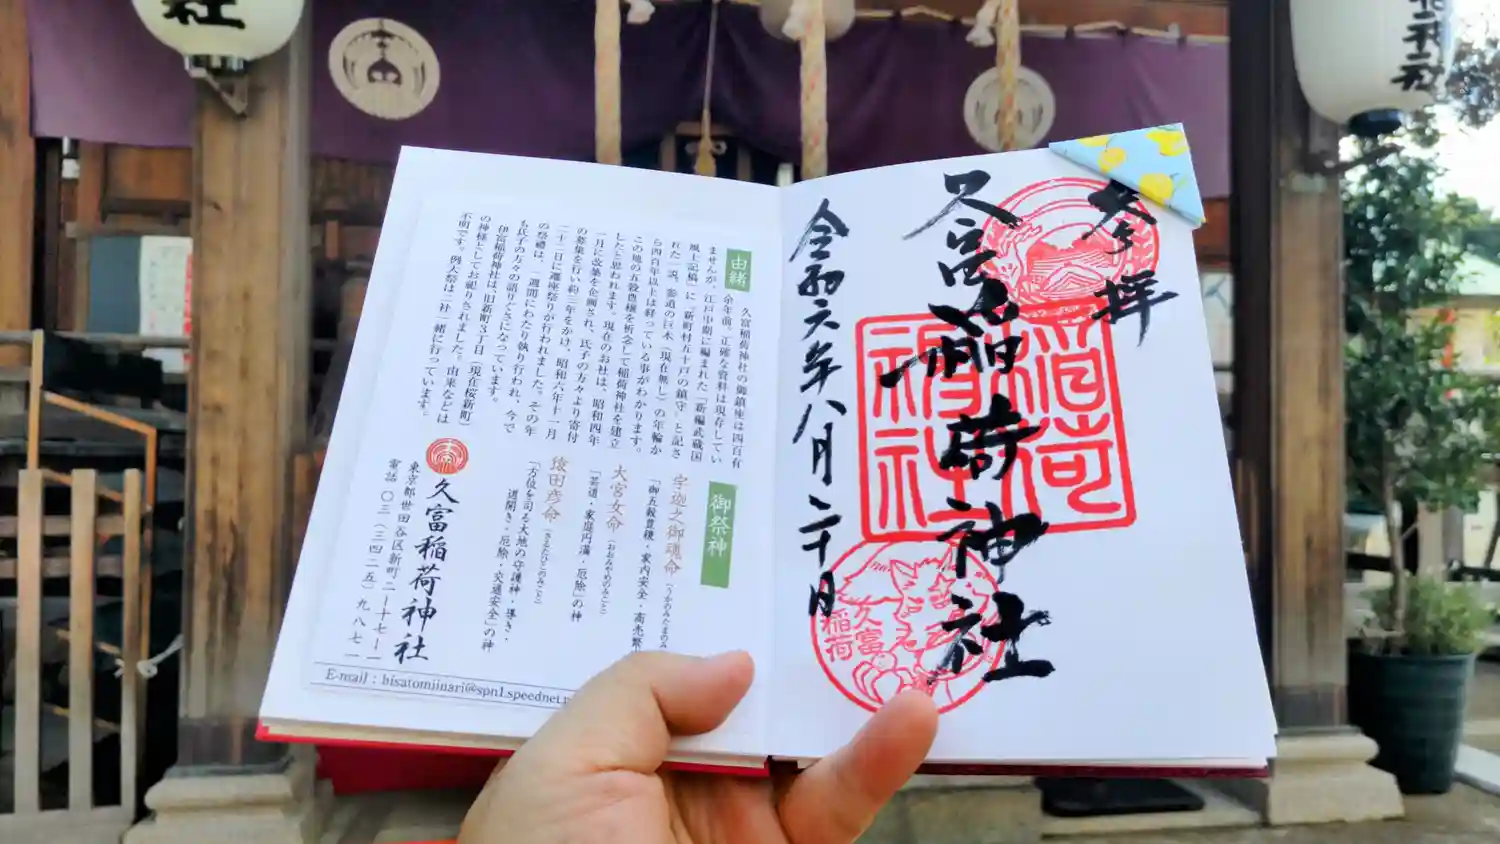 社
稲荷神社
参拝
久富稲荷神社
令和六年八月二十日
稲荷
神社
久富
稲荷
由緒
久富稲荷神社の御鎮座は四百有
余年前。正確な資料は現存してい
ませんが、江戸中期に編まれた「新編武蔵国
風土記稿」に「新町村五十戸の鎮守」と記さ
れた一説、参道の巨木(現在無し)の年輪か
ら四百年以上は経っている事がわかります。
この地の五穀豊穣を祈念して稲荷神社を建立
したと思われます。現在のお社は、昭和四年
一月に改築を企画され、氏子の方々より寄付
の募集を行い約三年をかけ、昭和六年十一月
二十二日に遷座祭りが行われました。その年
の祭禮は、一週間にわたり執り行われ、今で
も氏子の方々の語りぐさになっています。
伊富稲荷神社は、旧新町3丁目(現在桜新町)
の神様としてお祀りされました。由来などは
不明です。例大祭は二社一緒に行っています。
御祭神
宇迦之御魂命(うかのみたまのみ
「御五穀豊穣・家内安全・商売繁
大宮女命(おおみやめのみこと)
「芸道・家庭円満・厄除」の神
猿田彦命(さるたひこのみこと)
「方位を司る大地の守護神・導き・
道開き・厄除・交通安全」の神
久富稲荷神社
東京都世田谷区新町二-十七-一
電話 〇三(三四二五)九八七一
E-mail：hisatomiinari@spn1.speednet.n